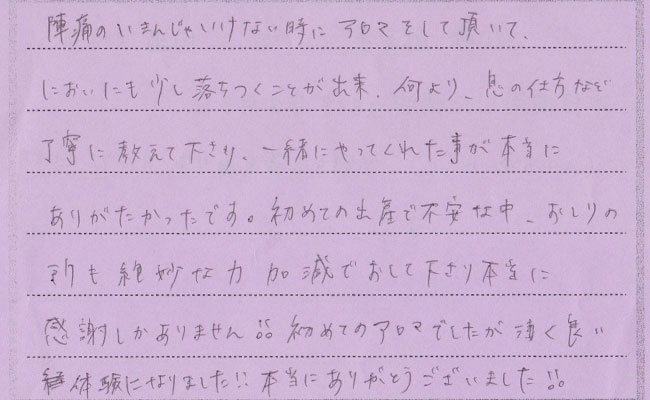 陣痛のいきんじゃいけない時にアロマをして頂いて、
においにも少し落ちつくことが出来、何より、息の仕方など
丁寧に教えて下さり、一緒にやってくれた事が本当に
ありがたかったです。初めての出産で不安な中、おしりの
所も絶妙な力加減でおして下さり本当に
感謝しかありません!! 初めてのアロマでしたが凄く良い
体験になりました!! 本当にありがとうございました!!